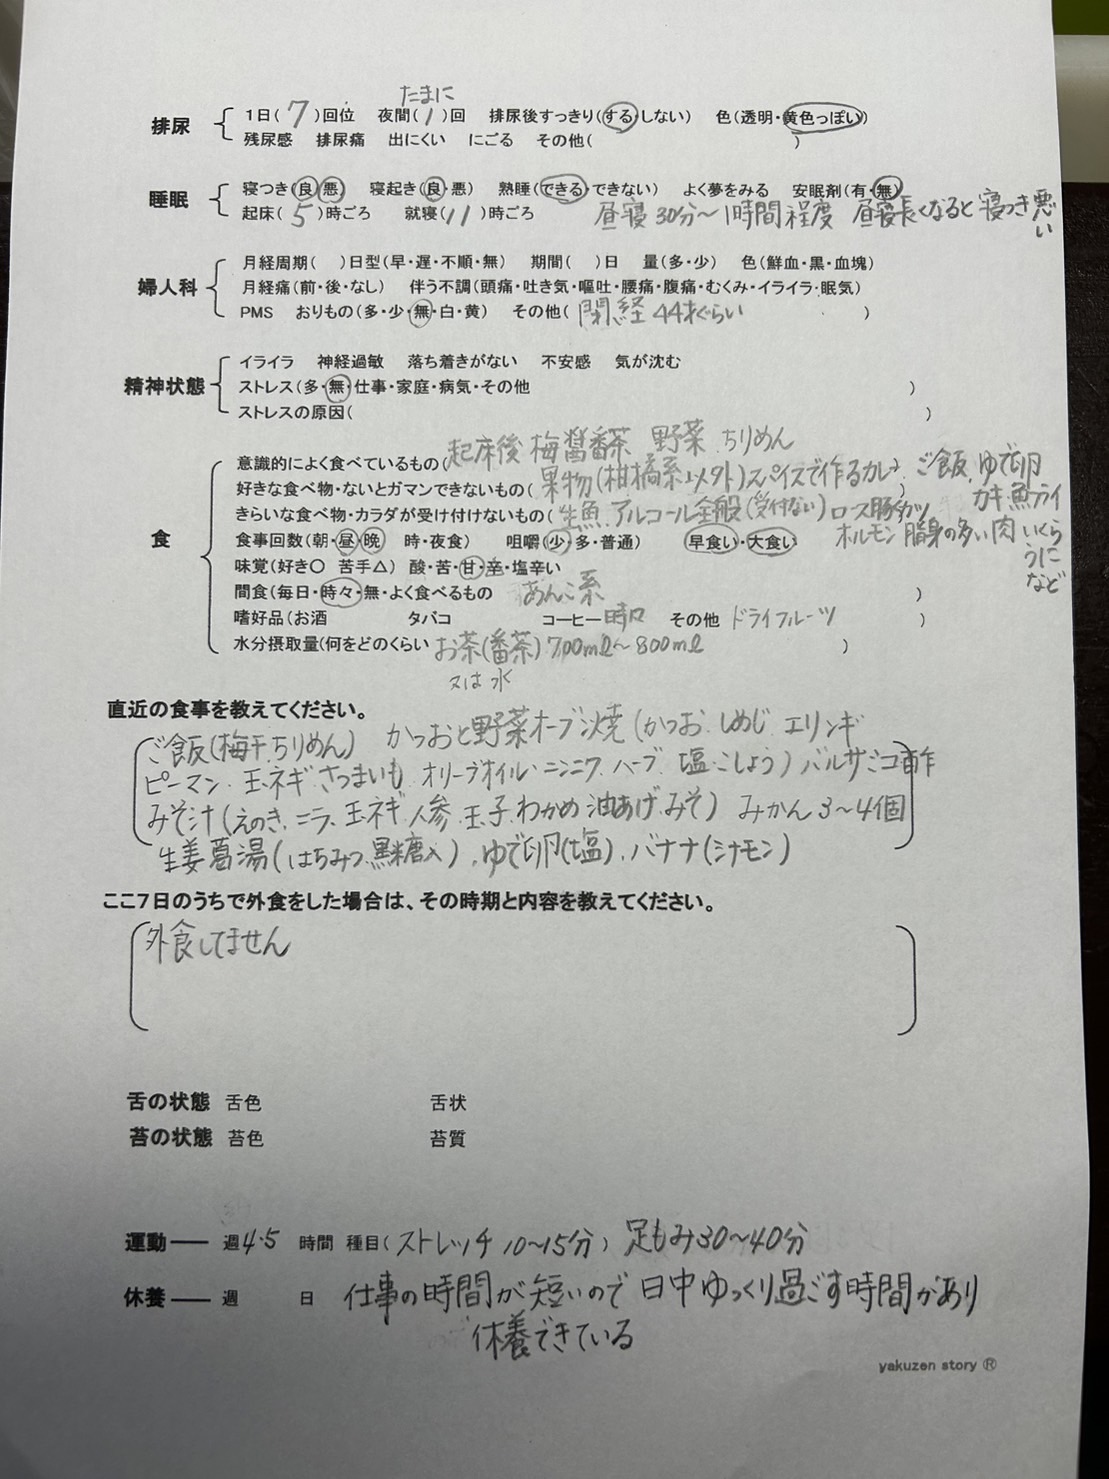 たまに
排尿 1日( 7 )回位 夜間( 1 )回 排尿後すっきり(する・しない) 色(透明・黄色っぽい)
残尿感 排尿痛 出にくい にごる その他( )
睡眠 寝つき(良・悪) 寝起き(良・悪) 熟睡(できる・できない) よく夢をみる 安眠剤(有・無)
起床( 5 )時ごろ 就寝( 11 )時ごろ 昼寝 30分〜1時間程度 昼寝長くなると寝つき悪い
婦人科 月経周期( )日型(早・遅・不順・無) 期間( )日 量(多・少) 色(鮮血・黒・血塊)
月経痛(前・後・なし) 伴う不調(頭痛・吐き気・嘔吐・腰痛・腹痛・むくみ・イライラ・眠気)
PMS おりもの(多・少・無・白・黄) その他( 閉経 44才ぐらい )
精神状態 イライラ 神経過敏 落ち着きがない 不安感 気が沈む
ストレス(多・無・仕事・家庭・病気・その他 )
ストレスの原因( )
食 意識的によく食べているもの(起床後 梅醤番茶 野菜 ちりめん
好きな食べ物・ないとガマンできないもの( 果物(柑橘系以外)スパイスで作るカレー ご飯、ゆで卵
カキ・魚フライ
きらいな食べ物・カラダが受け付けないもの( 生魚 アルコール全般(受付ない) ロース豚カツ
ホルモン 脂身の多い肉 いくら うに など
食事回数(朝・昼・晩 時・夜食) 咀嚼(少・多・普通) 早食い・大食い
味覚(好き〇 苦手△) 酸・苦・甘・辛・塩辛い
間食(毎日・時々・無・よく食べるもの あんこ系 )
嗜好品(お酒 タバコ コーヒー 時々 その他 ドライフルーツ )
水分摂取量(何をどのくらい お茶(番茶) 700mℓ〜800mℓ )
又は 水
直近の食事を教えてください。
ご飯(梅干、ちりめん) かつおと野菜オーブン焼(かつお、しめじ、エリンギ
ピーマン、玉ネギ、さつまいも、オリーブオイル・ニンニク、ハーブ、塩・こしょう) バルサミコ酢
みそ汁(えのき、ニラ、玉ネギ、人参、玉子、わかめ、油あげ、みそ) みかん 3〜4個
生姜葛湯(はちみつ、黒糖入)、ゆで卵(塩)、バナナ(シナモン)
ここ7日のうちで外食をした場合は、その時期と内容を教えてください。
外食してません
舌の状態 舌色 舌状
苔の状態 苔色 苔質
運動── 週4・5 時間 種目(ストレッチ 10〜15分) 足もみ30〜40分
休養── 週 日 仕事の時間が短いので日中ゆっくり過ごす時間があり
休養できている
yakuzen story ®